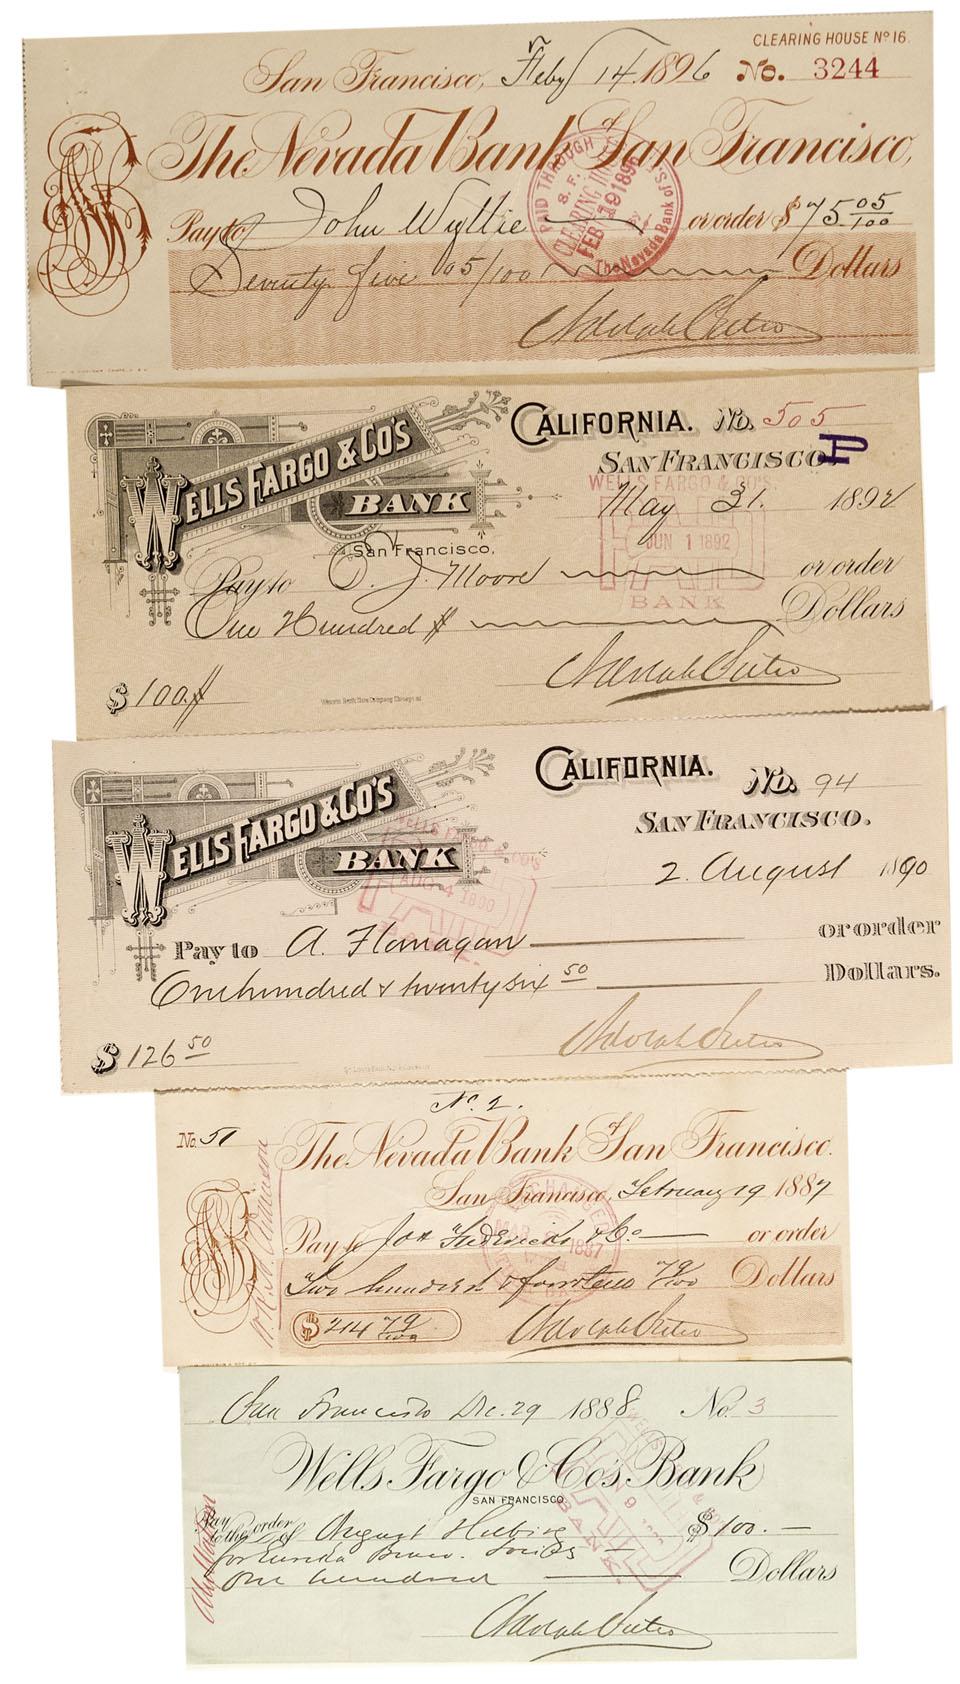 CLEARING HOUSE Nº 16.
San Francisco, Feby 14. 1896 No. 3244
The Nevada Bank of San Francisco,
PAID THROUGH
S. F.
CLEARING
FEB 19 1896
The Nevada Bank of S.F.
Pay to John Wyllie or order $75 05/100
Seventy five 05/100 Dollars
Adolph Sutro
WELLS FARGO & CO'S
BANK
San Francisco,
CALIFORNIA. No. 505
SAN FRANCISCO
P
WELLS FARGO & CO'S.
May 31. 1892
PAID
JUN 1 1892
BANK
Pay to O. J. Moore or order
One Hundred $ Dollars
Adolph Sutro
$ 100.
WELLS FARGO & CO'S
BANK
CALIFORNIA.
No. 94
SAN FRANCISCO.
2. August 1890
WELLS FARGO & CO'S
AUG 4 1890
PAID
Pay to A. Flanagan or order
One hundred & twenty six 50 Dollars.
$ 126 50
Adolph Sutro
No. 2.
No. 51
The Nevada Bank of San Francisco.
San Francisco, February 19 1887
Pay to Jos Fredericks & Co or order
Two hundred & fourteen 79/100 Dollars
$214 79/100
Adolph Sutro
San Francisco Dec. 29 1888 No. 3
Wells Fargo & Co's Bank
SAN FRANCISCO.
PAID
BANK.
Pay to the order of August Helbing $100.—
for Eureka Benev. Society
One hundred Dollars
Adolph Sutro